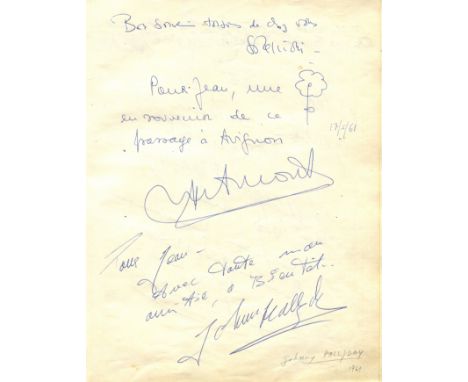 Bon souvenir de chez vous
Pour Jean, une
en souvenir de ce
passage à Avignon
Pour Jean -
Avec toute mon
amitié, à Bientôt.
Johnny Hallyday
Johnny HALLYDAY
1961